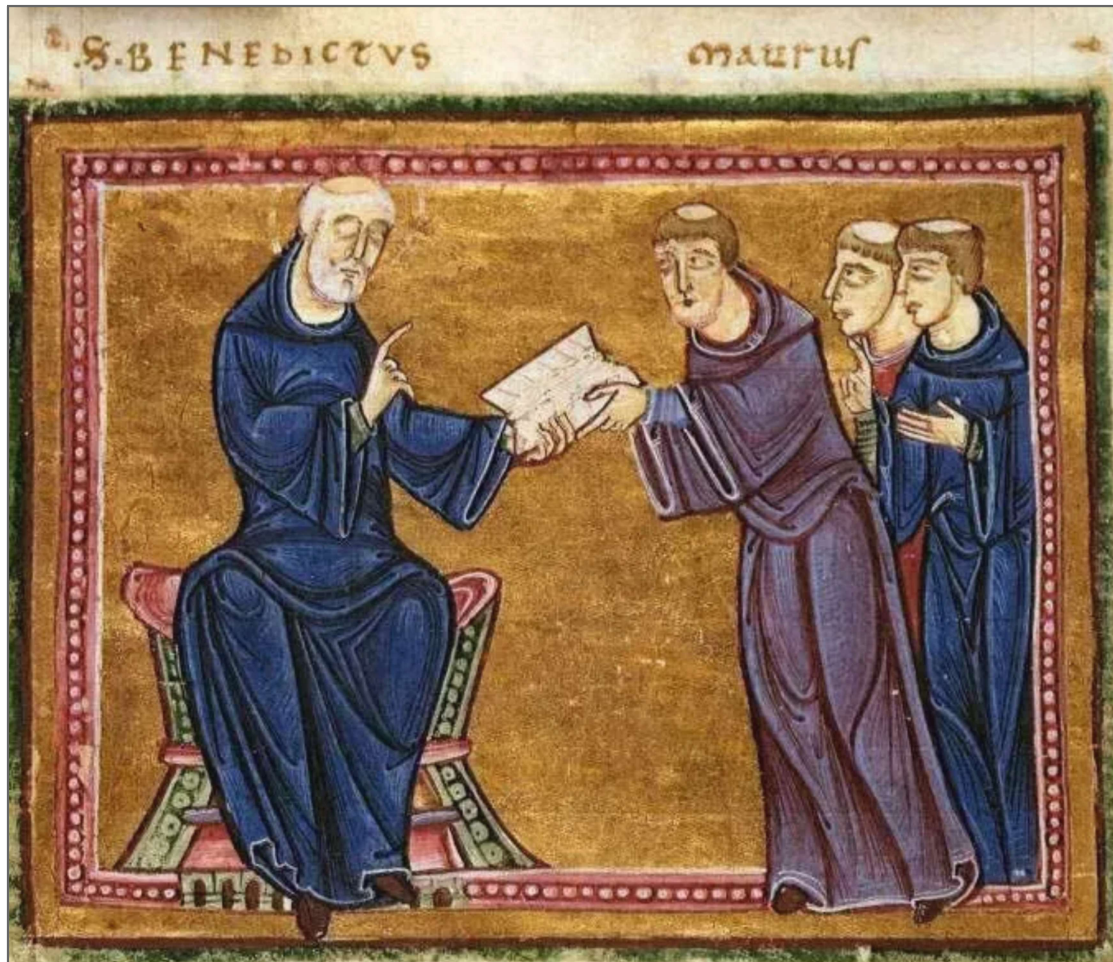 .S. BENEDICTVS Maurus